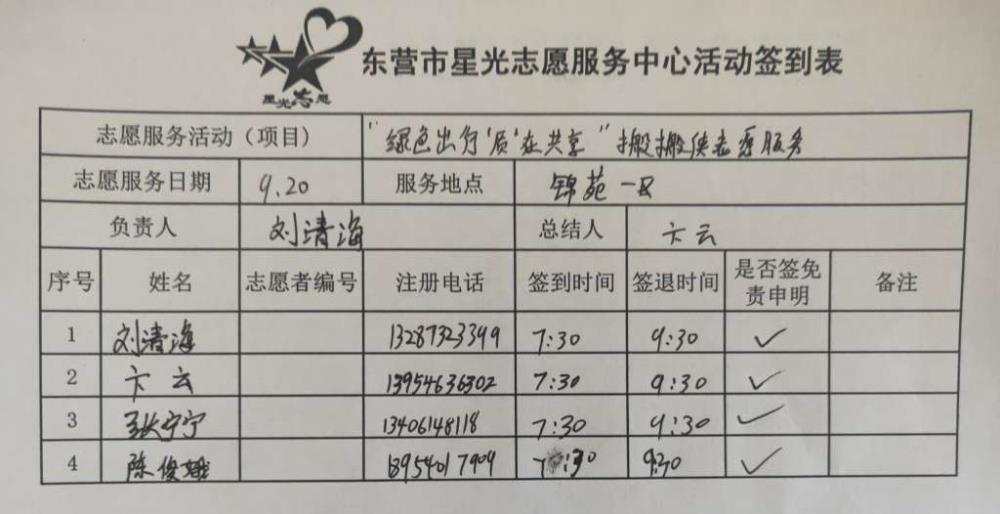 星光志愿
东营市星光志愿服务中心活动签到表
志愿服务活动（项目） "绿色出行'质'在共享"搬搬侠志愿服务
志愿服务日期 9.20 服务地点 锦苑一区
负责人 刘清海 总结人 卞云
序号 姓名 志愿者编号 注册电话 签到时间 签退时间 是否签免责申明 备注
1 刘清海 13287323349 7:30 9:30 ✓
2 卞云 13954636302 7:30 9:30 ✓
3 张宁宁 13406148118 7:30 9:30 ✓
4 陈俊娥 13954017909 7:30 9:30 ✓